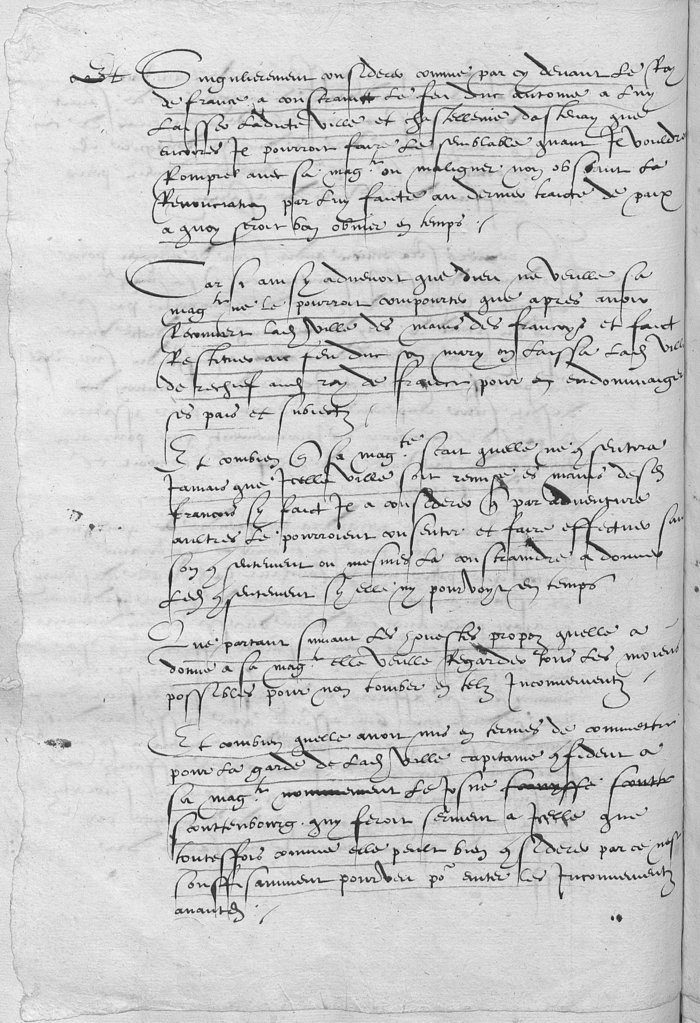 Et Singulierement considerer comme par cy devant le Roy
de france a constrainct le feu duc antoine a luy
laisser ladicte ville et chastellenie dastenay que
encores Il pourroit faire le semblable quant Il vouldra
Rompre avec sa mag.te ou maligner non obstant la
Renonciation par luy faicte au dernier traicte de paix
a quoy seroit bon obvier en temps ./
Car si ainsy advenoit que dieu ne veulle sa
mag.te ne le pourroit comporter que apres avoir
Recouvert lad ville des mains des francoys et faict
Restituer au feu duc son mary on laissa lad ville
de rechief aud roy de france pour en endommaiger
ses pais et subiectz /
Et combien q sa mag.te scait quelle ne qsentira
Jamais que Icelle ville soit remise es mains desd
francois sy faict Il a considerer q par adventure
aultres le pourroient consentir et faire effectuer sans
son qsentement ou mesmes la constraindre a donner
led qsentement sy elle ny pourvoyt en temps
Que partant suivant les honestes propoz quelle a
donne a sa mag.te elle veulle Regarder tous les moiens
possibles pour non tomber en telz Inconvenientz /
Et combien quelle avoit mis en termes de commettre
pour la garde de lad ville capitaine qfident a
sa mag.te le Josne
scouttenbourg quy feroit serment a Icelle que
touteffois comme elle peult bien qsiderer par ce nest
souffisamment pourveu po.r eviter les Inconvenientz
avantd /